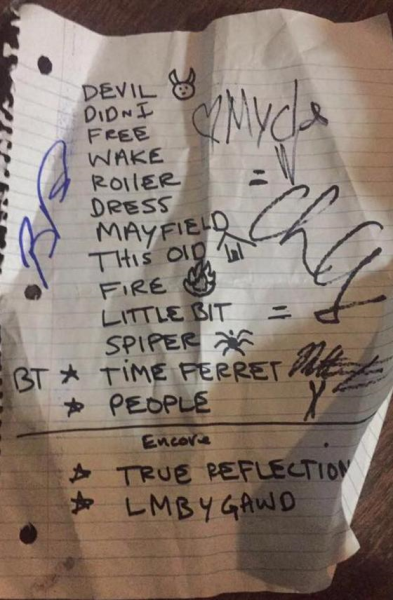 DEVIL
DIDNI
FREE
WAKE
ROLLER
DRESS
MAYFIELD
THIS OLD
FIRE
LITTLE BIT
SPIPER
BT TIME FERRET
PEOPLE
Encore
TRUE REFLECTION
LMBYGAWD